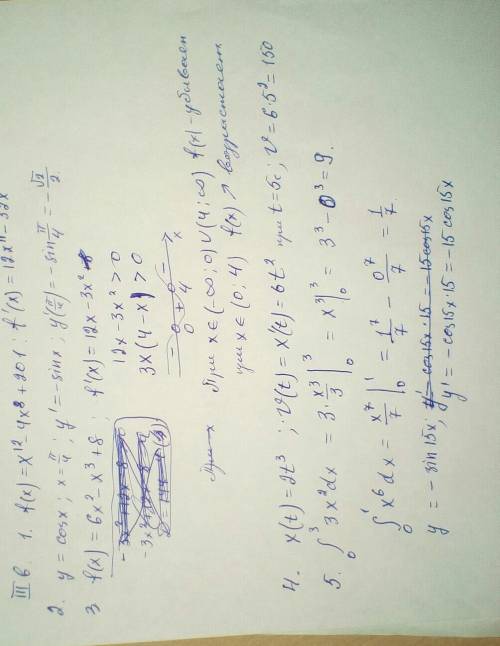 III в. 1. f(x) = x¹² - 4x⁸ + 201 : f'(x) = 12x¹¹ - 32x
2. y = cos x ; x = π/4 ; y' = -sin x ; y'(π/4) = -sin π/4 = -√2/2.
3 f(x) = 6x² - x³ + 8 : f'(x) = 12x - 3x²
12x - 3x² > 0
3x(4 - x) > 0
- 0 + 0 - x
0 4
При x ∈ (-∞; 0) ∪ (4; ∞) f(x) - убывает
при x ∈ (0; 4) f(x) ↗ возрастает
4. x(t) = 2t³ ; v(t) = x'(t) = 6t² при t = 5c ; v = 6·5² = 150
5. ∫₀³ 3x²dx = 3·x³/3 |₀³ = x³|₀³ = 3³ - 0³ = 9.
∫₀¹ x⁶dx = x⁷/7 |₀¹ = 1⁷/7 - 0⁷/7 = 1/7.
y = -sin 15x ; y' = -cos 15x·15 = -15 cos 15x
y' = -cos 15x·15 = -15 cos 15x